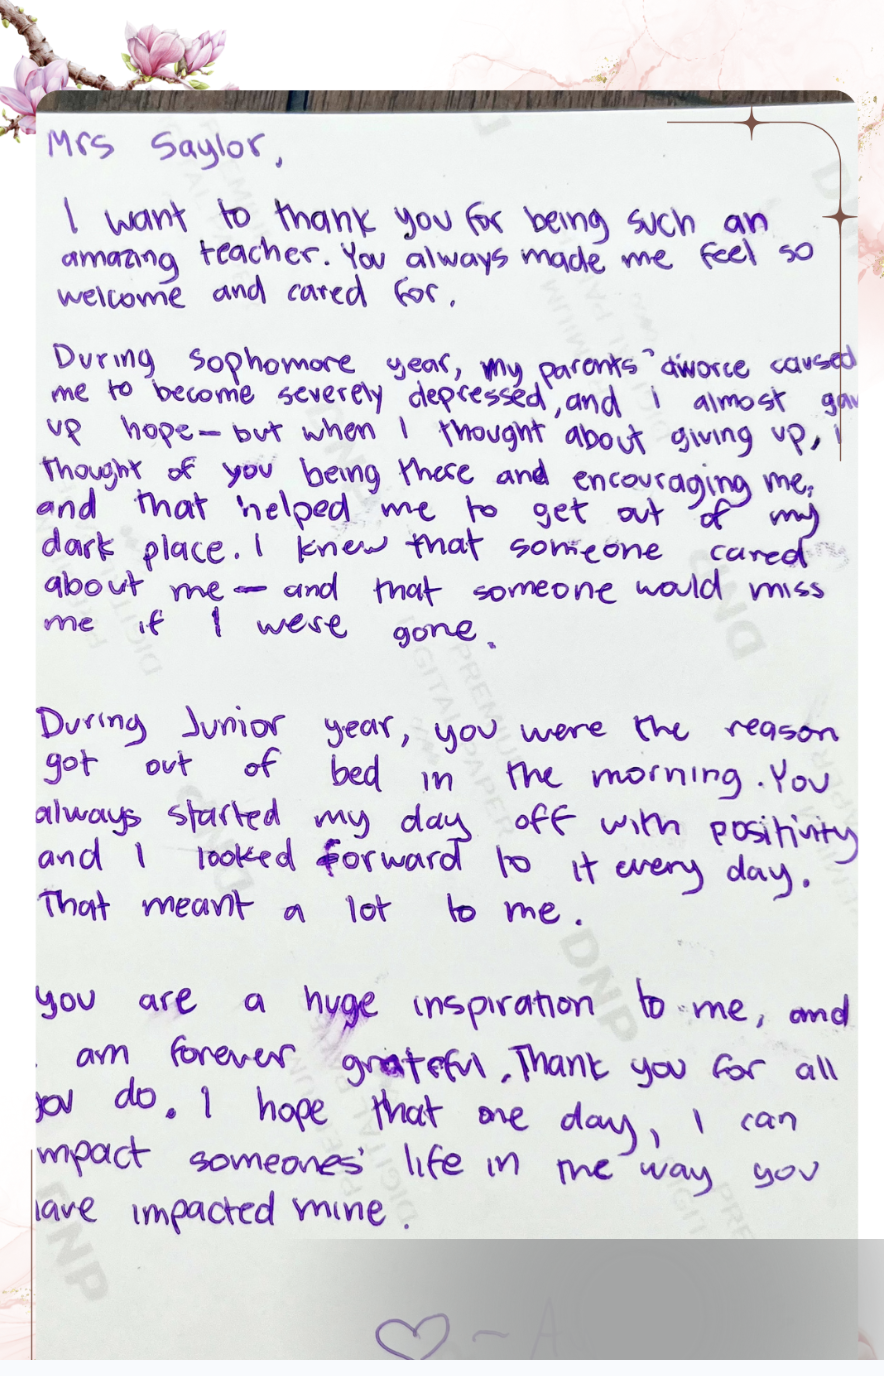 Mrs Saylor,
I want to thank you for being such an
amazing teacher. You always made me feel so
welcome and cared for.
During Sophomore year, my parents' divorce caused
me to become severely depressed, and i almost gav
up hope - but when I thought about giving up, i
thought of you being there and encouraging me,
and that helped me to get out of my
dark place. I knew that someone cared
about me - and that someone would miss
me if I were gone.
During Junior year, you were the reason
got out of bed in the morning. You
always started my day off with positivity
and I looked forward to it every day.
That meant a lot to me.
you are a huge inspiration to me, and
am forever grateful. Thank you for all
you do. I hope that one day, I can
mpact someones' life in the way you
ave impacted mine.
♡ ~ A
DNP
PREMIUM
DIGITAL PAPER